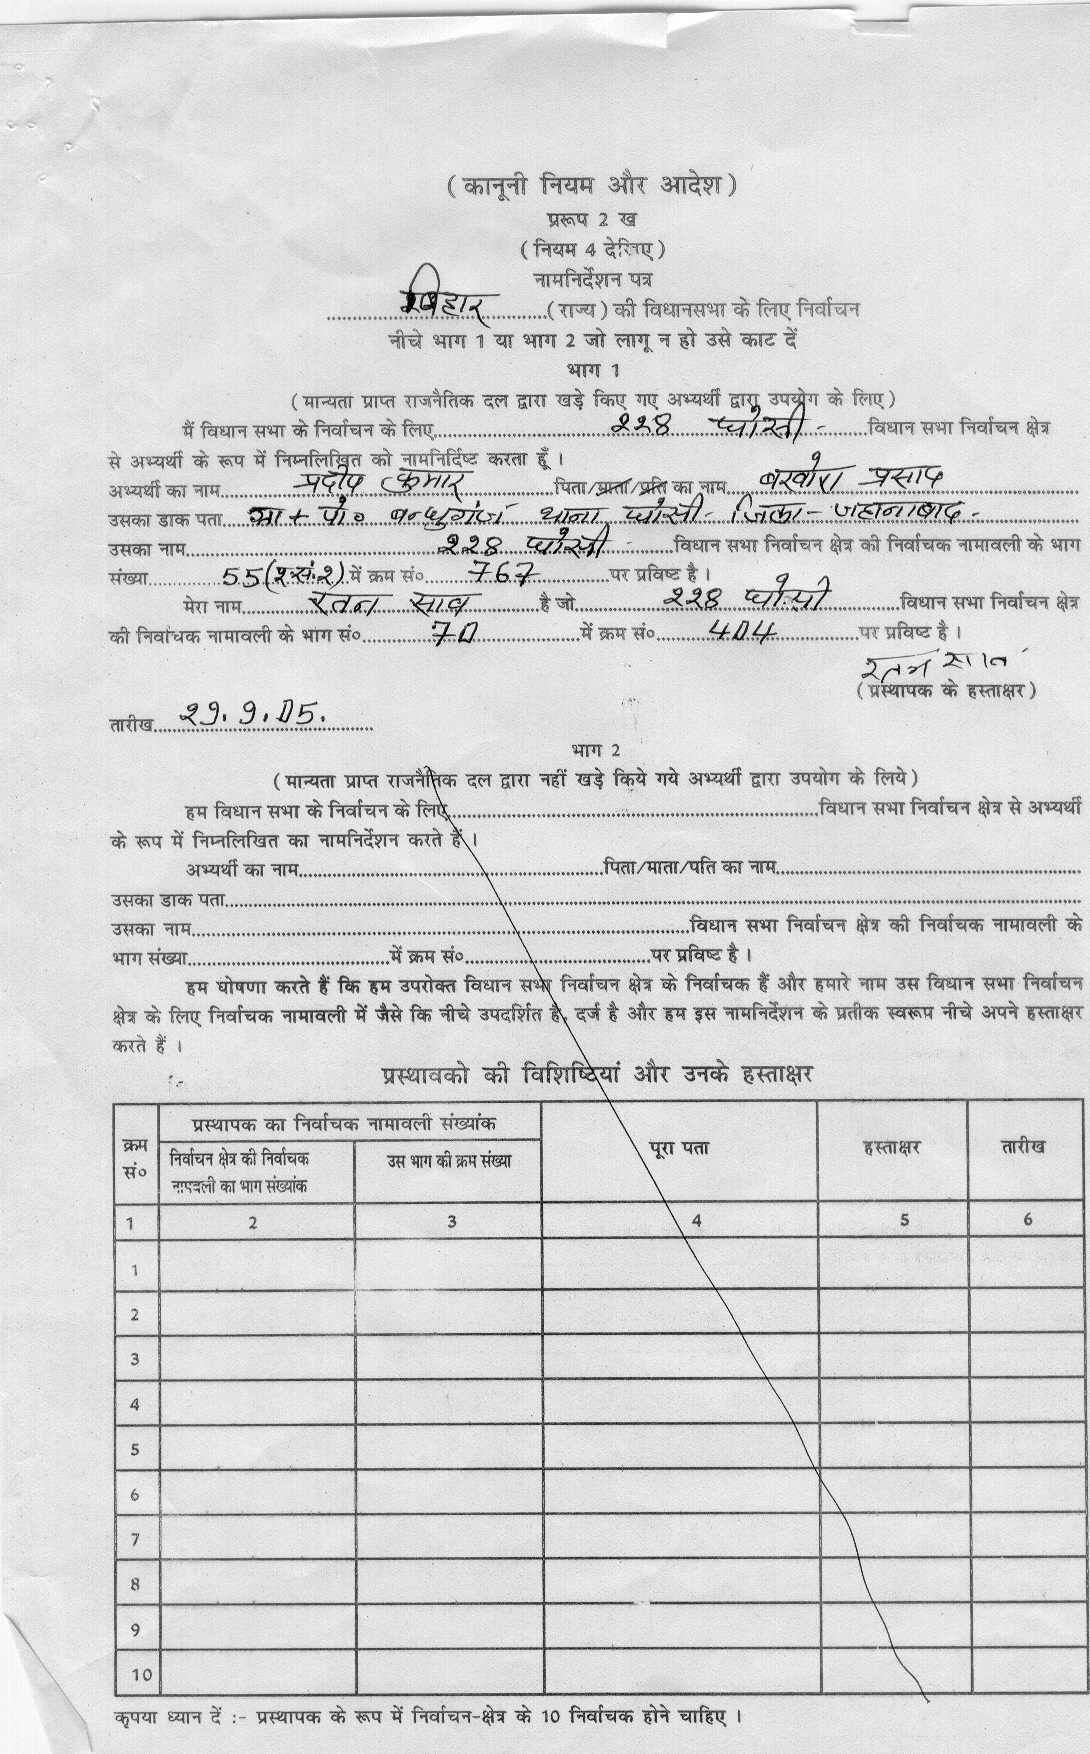 ( कानूनी नियम और आदेश )
प्ररूप 2 ख
( नियम 4 देखिए )
नामनिर्देशन पत्र
बिहार (राज्य) की विधानसभा के लिए निर्वाचन
नीचे भाग 1 या भाग 2 जो लागू न हो उसे काट दें
भाग 1
( मान्यता प्राप्त राजनैतिक दल द्वारा खड़े किए गए अभ्यर्थी द्वारा उपयोग के लिए )
मैं विधान सभा के निर्वाचन के लिए 228 घोसी - विधान सभा निर्वाचन क्षेत्र
से अभ्यर्थी के रूप में निम्नलिखित को नामनिर्दिष्ट करता हूँ ।
अभ्यर्थी का नाम प्रदीप कुमार पिता/माता/पति का नाम बखोरी प्रसाद
उसका डाक पता ग्रा + पो० बन्धुगंज थाना घोसी - जिला - जहानाबाद -
उसका नाम 228 घोसी - विधान सभा निर्वाचन क्षेत्र की निर्वाचक नामावली के भाग
संख्या 55 में क्रम सं० 767 पर प्रविष्ट है ।
मेरा नाम रतन साव है जो 228 घोसी विधान सभा निर्वाचन क्षेत्र
की निर्वाचक नामावली के भाग सं० 70 में क्रम सं० 404 पर प्रविष्ट है ।
रतन साव
( प्रस्थापक के हस्ताक्षर )
तारीख 29.9.05.
भाग 2
( मान्यता प्राप्त राजनैतिक दल द्वारा नहीं खड़े किये गये अभ्यर्थी द्वारा उपयोग के लिये )
हम विधान सभा के निर्वाचन के लिए विधान सभा निर्वाचन क्षेत्र से अभ्यर्थी
के रूप में निम्नलिखित का नामनिर्देशन करते हैं ।
अभ्यर्थी का नाम पिता/माता/पति का नाम
उसका डाक पता
उसका नाम विधान सभा निर्वाचन क्षेत्र की निर्वाचक नामावली के
भाग संख्या में क्रम सं० पर प्रविष्ट है ।
हम घोषणा करते हैं कि हम उपरोक्त विधान सभा निर्वाचन क्षेत्र के निर्वाचक हैं और हमारे नाम उस विधान सभा निर्वाचन
क्षेत्र के लिए निर्वाचक नामावली में जैसे कि नीचे उपदर्शित है, दर्ज है और हम इस नामनिर्देशन के प्रतीक स्वरूप नीचे अपने हस्ताक्षर
करते हैं ।
प्रस्थावको की विशिष्टियां और उनके हस्ताक्षर
क्रम सं० प्रस्थापक का निर्वाचक नामावली संख्यांक पूरा पता हस्ताक्षर तारीख
निर्वाचन क्षेत्र की निर्वाचक उस भाग की क्रम संख्या
नामवली का भाग संख्यांक
1 2 3 4 5 6
1
2
3
4
5
6
7
8
9
10
कृपया ध्यान दें :- प्रस्थापक के रूप में निर्वाचन-क्षेत्र के 10 निर्वाचक होने चाहिए ।